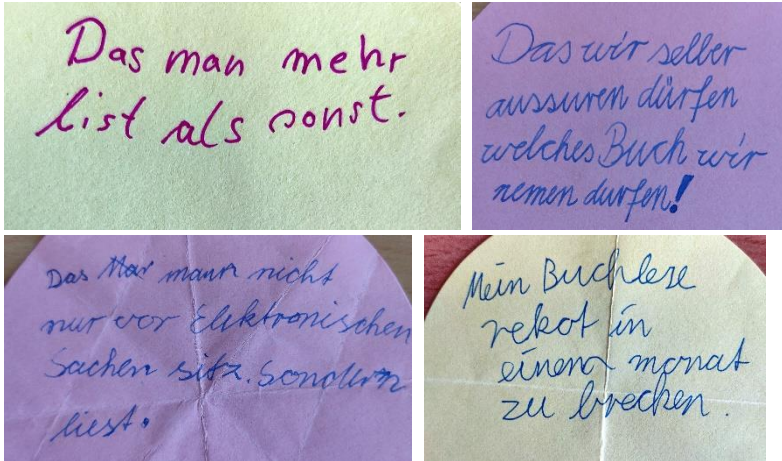 Das man mehr
list als sonst.
Das wir selber
aussuren dürfen
welches Buch wir
nemen durfen!
Das Mar mann nicht
nur vor Elektronischen
Sachen sitz. Sondern
liest.
Mein Buchlese
rekot in
einem monat
zu brecken.